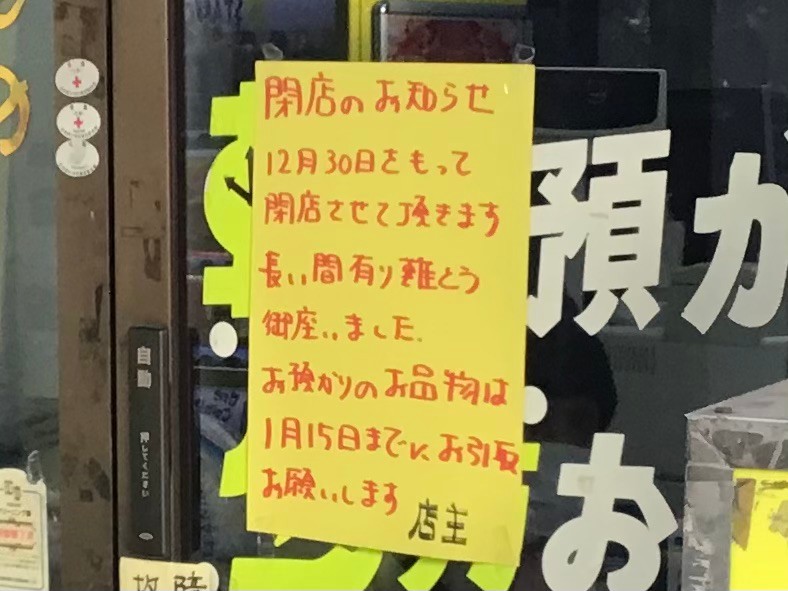 閉店のお知らせ
12月30日をもって
閉店させて頂きます
長い間有り難とう
御座いました.
お預かりのお品物は
1月15日までに、お引取
お願いします
店主
預か
お
自動
押してください
故障